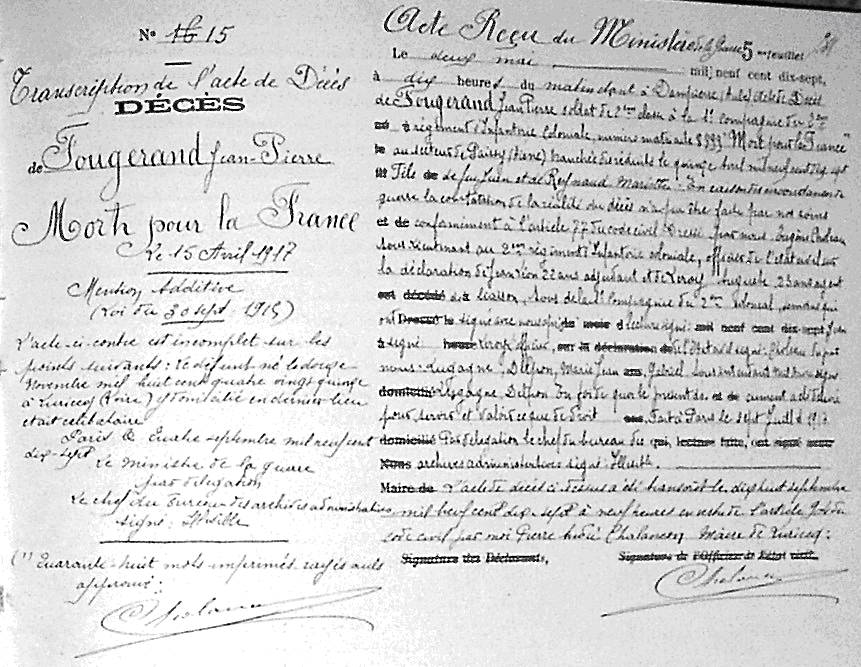 Nº 16 15
Transcription de l'acte de Décès
DÉCÈS
de Fougerand Jean-Pierre
Mort pour la France
Le 15 Avril 1917
Mention Additive
(Loi du 30 sept. 1915)
L'acte ci-contre est incomplet sur les
points suivants : Le défunt né le douze
Novembre mil huit cent quatre vingt quinze
à Luriecq (Loire) y domicilié en dernier lieu
était célibataire
Paris le quatre septembre mil neuf cent
dix-sept
Le ministre de la guerre
par délégation
Le chef du Bureau des archives administratives
signé : Illisible
(1) Quarante-huit mots imprimés rayés nuls
approuvé :
Chalancon
Acte Reçu du Ministère de la Guerre 5me feuillet
Le deux mai mil neuf cent dix-sept,
à dix heures du matin étant à Dampierre (Aube) acte de Décès
de Fougerand Jean Pierre soldat de 2ème classe à la 1e compagnie du 2ème
régiment d'Infanterie Coloniale, numéro matricule 8993 "Mort pour la France"
au secteur de Paissy (Aisne) tranchée le quinze avril mil neuf cent dix sept
Fils de et de Reynaud Mariette. En raison des circonstances de
guerre la constatation de la réalité du décès n'a pu être faite par nos soins
et de conformément à l'article 77 du code civil Dressé par nous Eugène
sous-lieutenant au 2ème régiment d'Infanterie coloniale, officier de l'état civil sur
la déclaration de 22 ans adjudant et de Leroy Auguste 23 ans agent
est décédé de liaison, tous de la 1e Compagnie du 2ème colonial, témoins qui
ont Dressé le signé avec nous du mois d lecture signé : mil neuf cent dix-sept
à signé heure Leroy sur la déclaration de l'état civil signé :
nous : Delpon, Marie Jean ans, Gabriel, sous intendant militaire signé
domicilié Delpon En foi de quoi le présent et de document a été délivré
pour servir et valoir ce que de droit ans, Fait à Paris le sept Juill 1917
domicilié Par délégation le chef du bureau des qui, lecture faite, ont signé avec
Nous archives administratives signé : Illisible.
Maire de L'acte de décès ci-dessus a été transcrit le dix huit septembre
mil neuf cent dix-sept à neuf heures en vertu de l'article du
code civil par moi Pierre Chalancon Maire de Luriecq :
Signature des Déclarants, Signature de l'Officier de l'état civil.
Chalancon